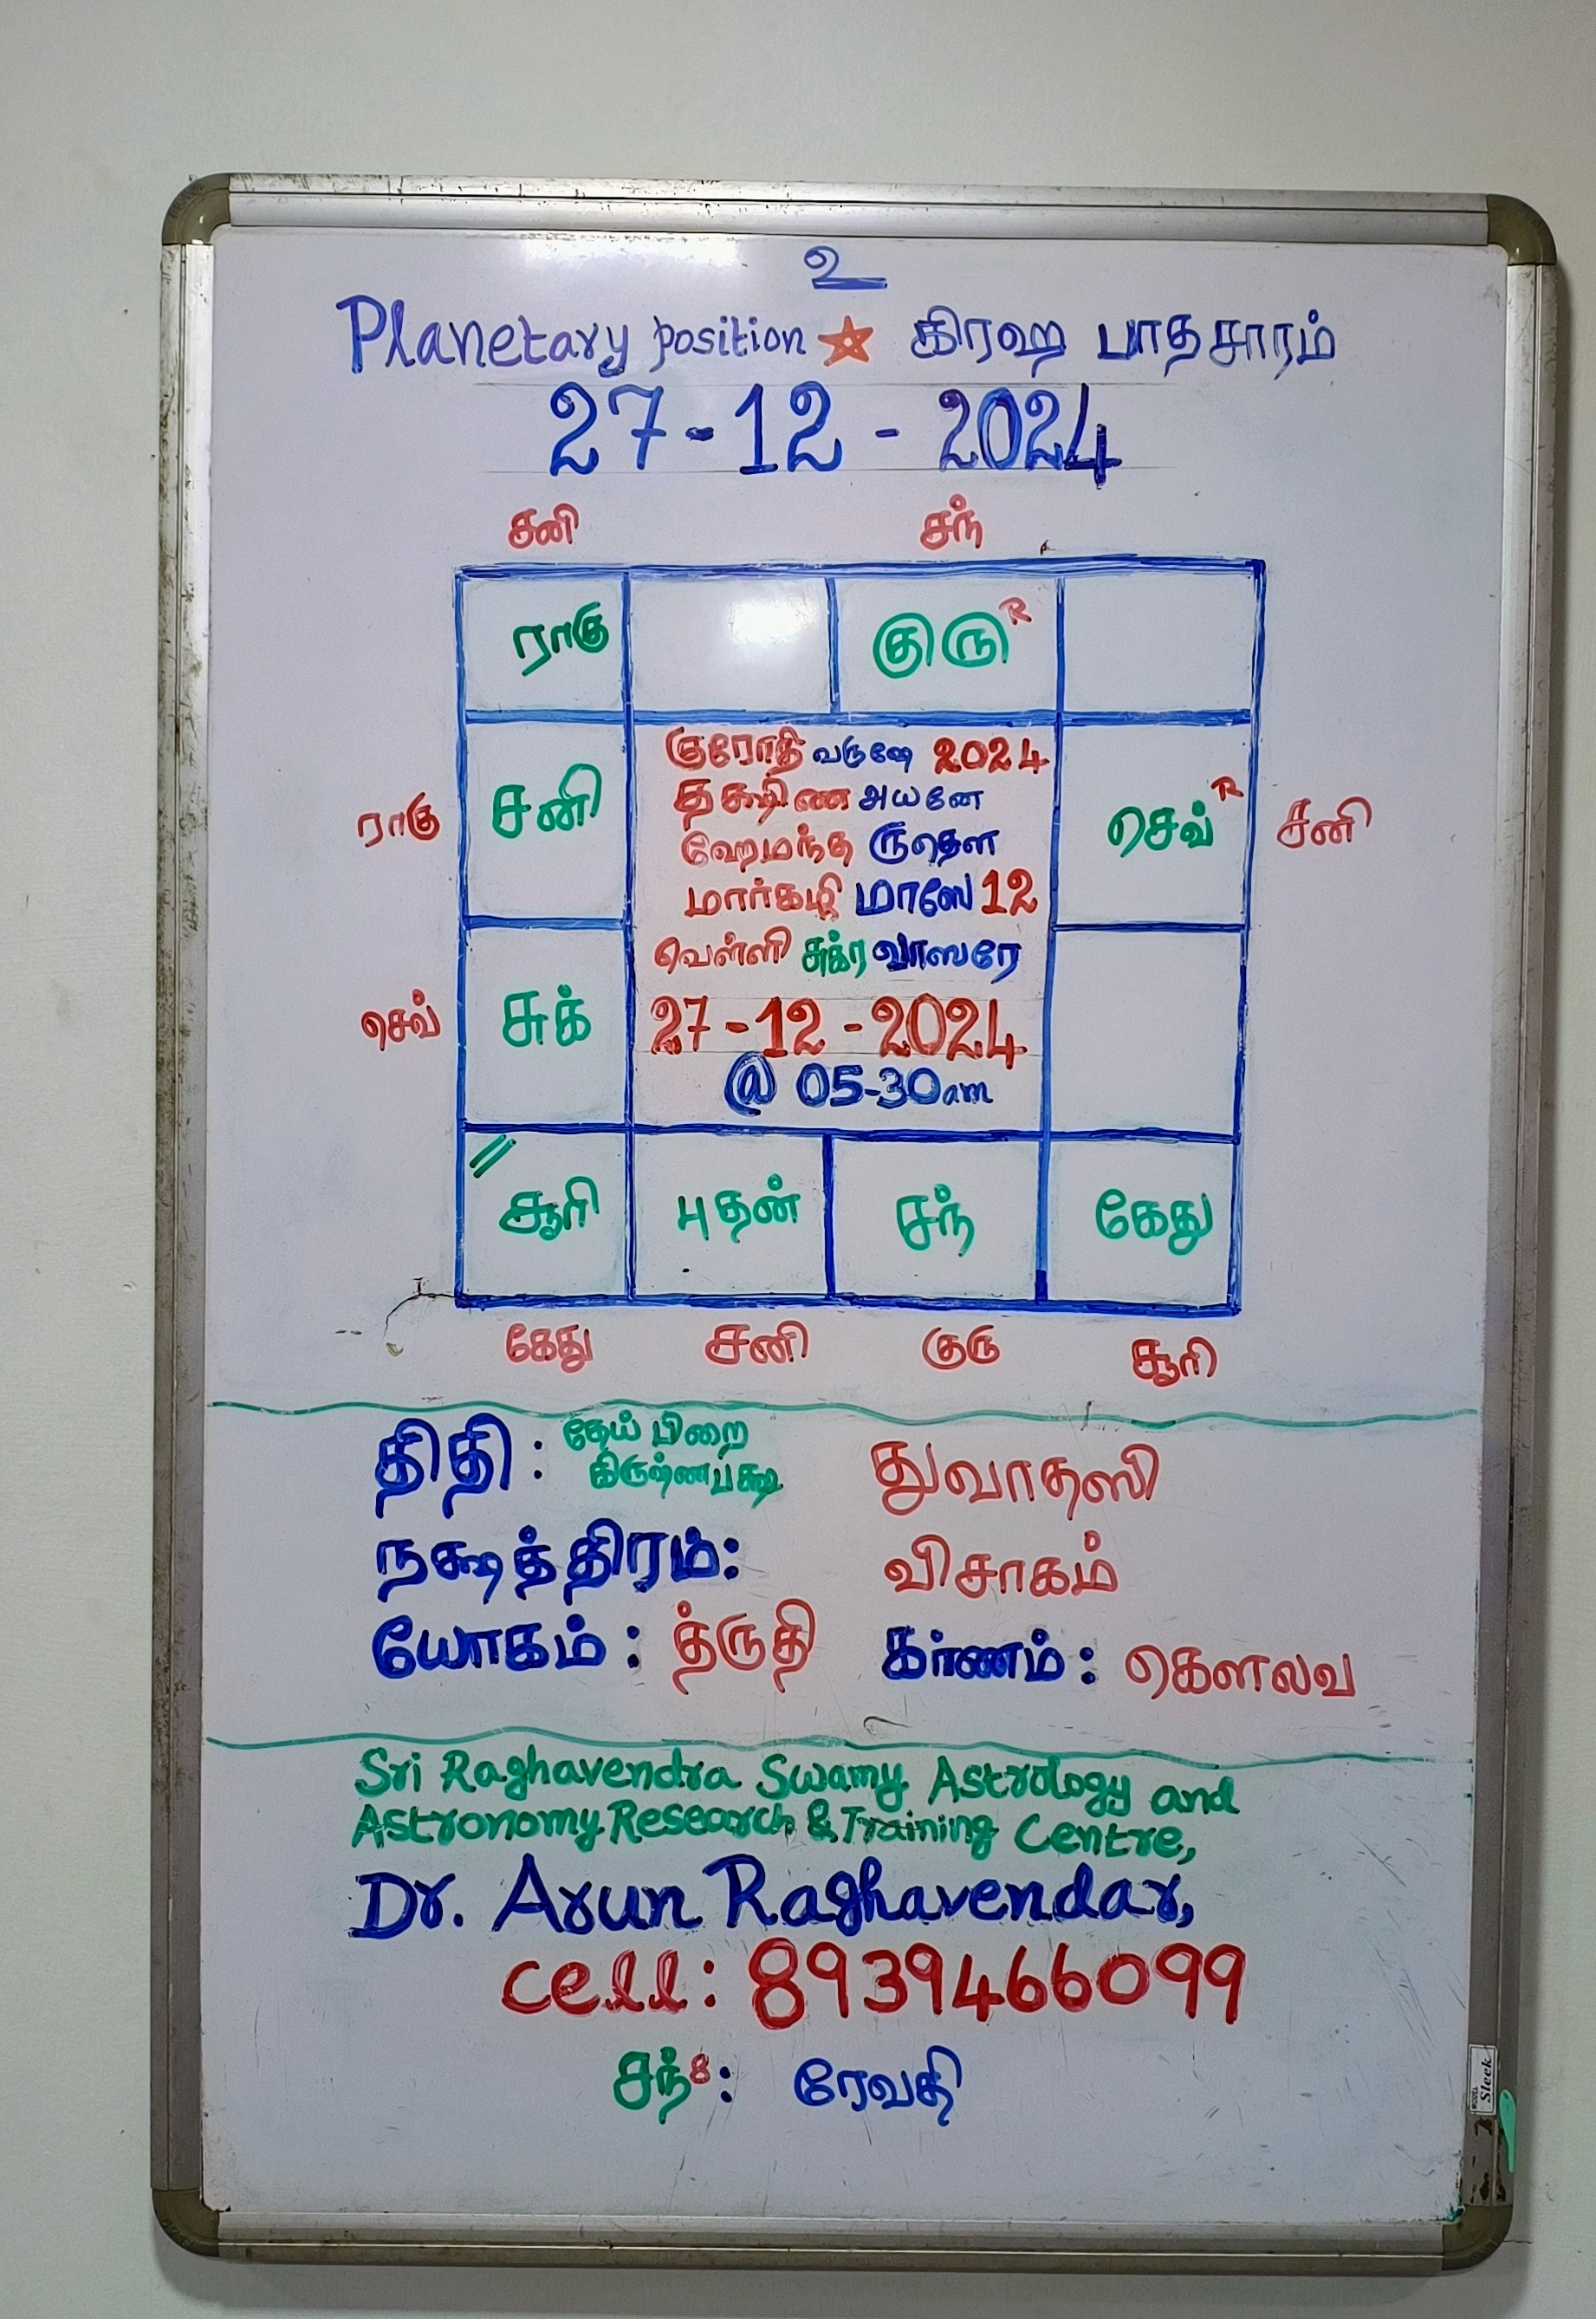 உ
Planetary position ☆ கிரஹ பாதசாரம்
27-12-2024
சனி சந்
ராகு குரு R
குரோதி வருஷே 2024
தக்ஷிண அயனே
ராகு சனி செவ் R சனி
ஹேமந்த ருதௌ
மார்கழி மாஸே 12
வெள்ளி சுக்ர வாஸரே
செவ் சுக் 27-12-2024
@ 05-30am
சூரி புதன் சந் கேது
கேது சனி குரு சூரி
திதி: தேய் பிறை கிருஷ்ணபக்ஷ துவாதஸி
நக்ஷத்திரம்: விசாகம்
யோகம்: த்ருதி கர்ணம்: கௌலவ
Sri Raghavendra Swamy Astrology and
Astronomy Research & Training Centre,
Dr. Arun Raghavendar,
cell: 8939466099
சந் 8: ரேவதி
Sleek